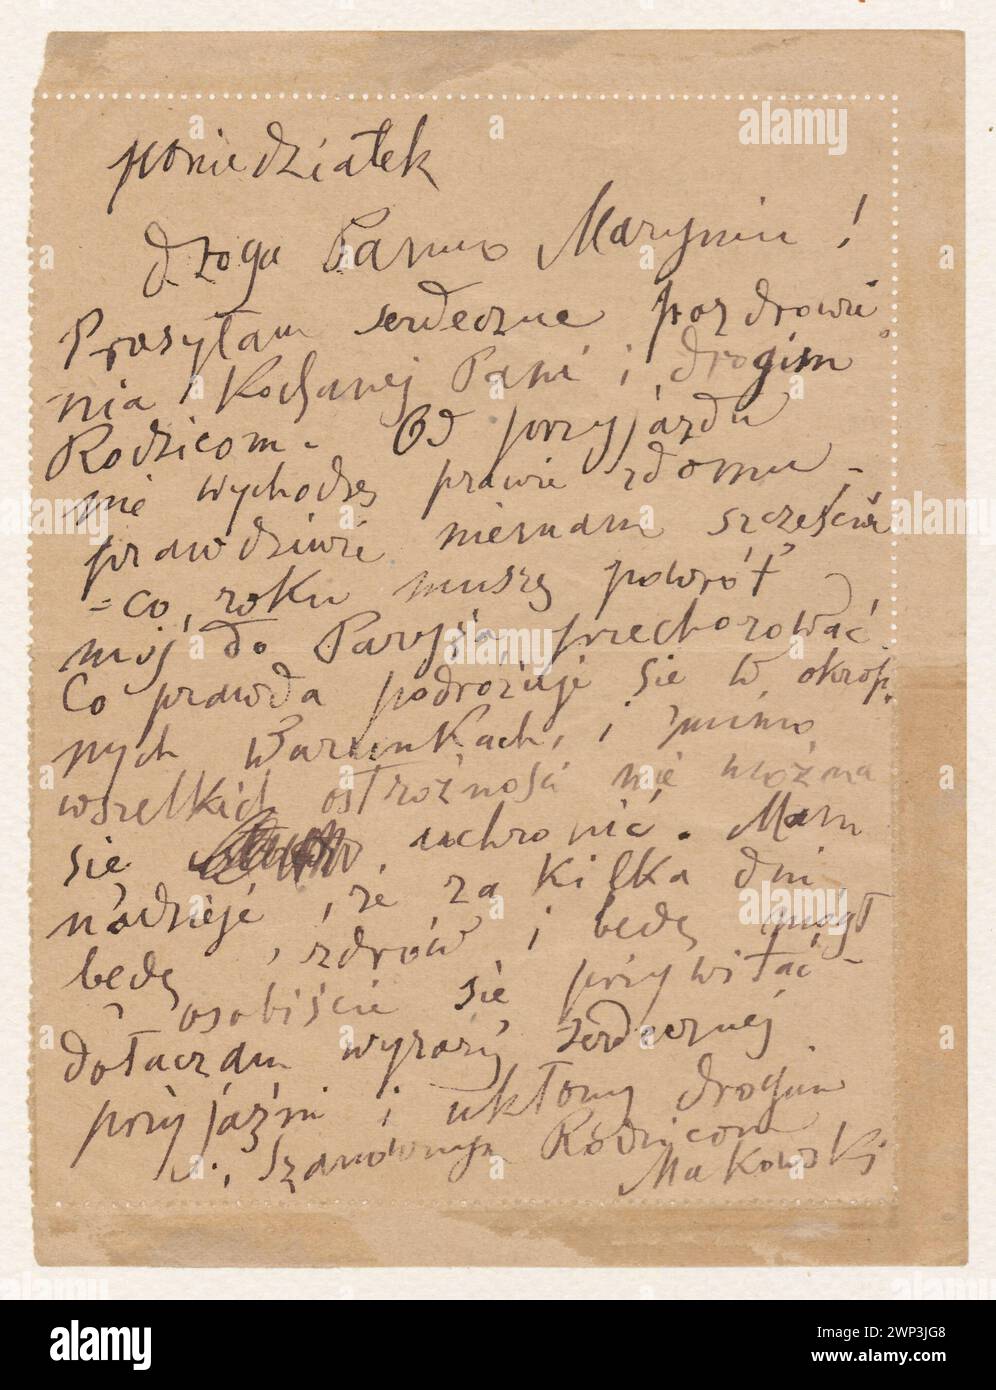 poniedziałek
Droga Panno Maryniu !
Przesyłam serdeczne pozdrowie
nia Kochanej Pani i drogim
Rodzicom. Od przyjazdu
nie wychodzę prawie zdomu -
prawdziwie niemam szczęścia
= co roku muszę powrót
mój do Paryża przechorować
Co prawda podróżuje sie w okrop.
nych warunkach, i mimo
wszelkich ostrożności nie można
sie uchronić. Mam
nadzieję, że za kilka dni
będę zdrów i będę mógł
osobiście się przywitać -
dołaczam wyrazy serdecznej
przyjaźni i ukłony drogim
i Szanownym Rodzicom
Makowski
alamy
Image ID: 2WP3JG8
www.alamy.com